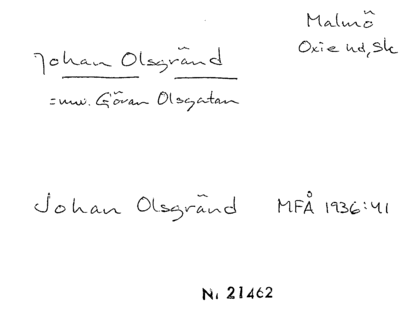 Malmö
Oxie hd, Sk
Johan Olsgränd
= nuv. Göran Olsgatan
Johan Olsgränd MFÅ 1936:41
N: 21462